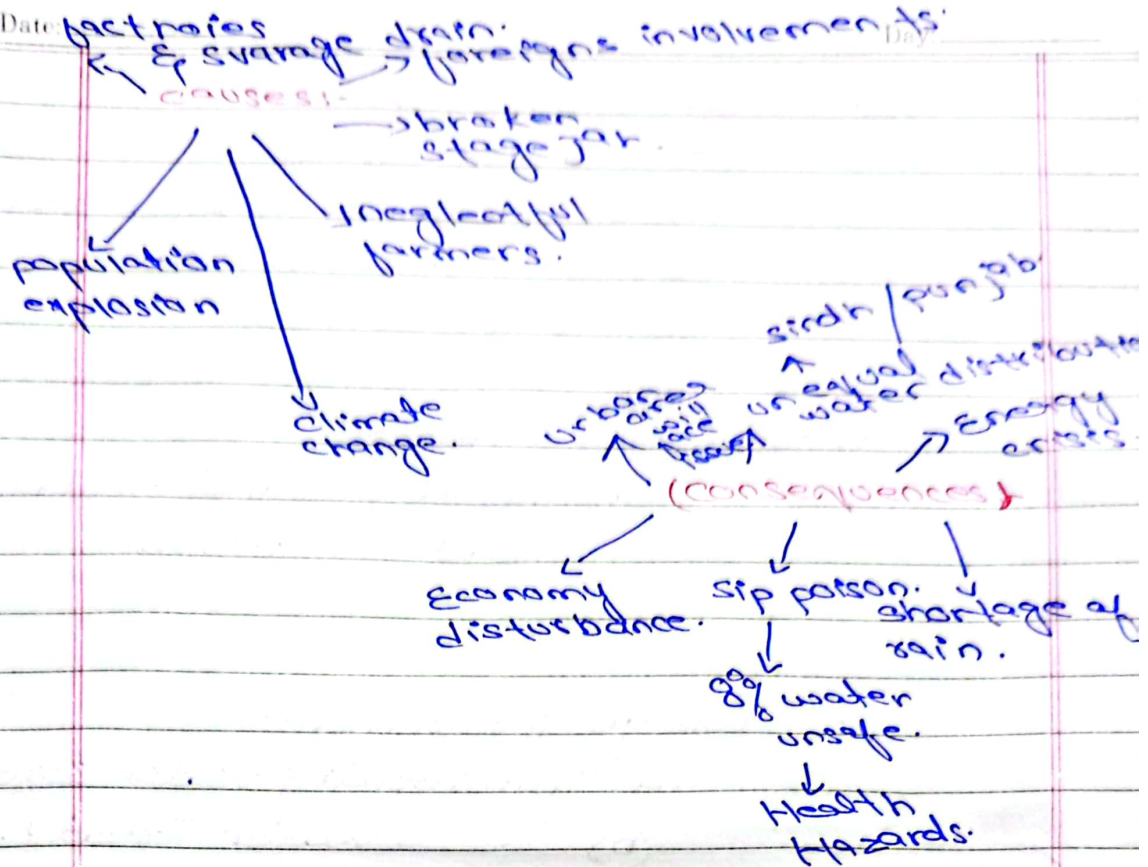 Date:
Day
factroies
& svarage drain.
foreigns involvements.
causes:-
broken
stage jar.
neglectful
farmers.
population
explosion
climate
change.
sirdh / punjab
unequal distributio
water
urban areas
will
face
Energy
crisis.
(Consequences)
Economy
disturbance.
sip poison.
shortage of
rain.
8% water
unsafe.
Health
Hazards.